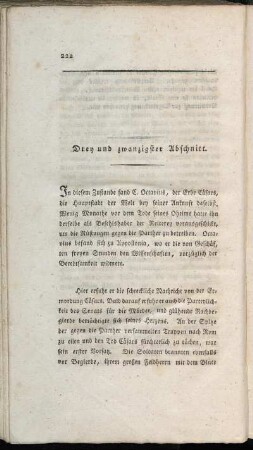 222
Drey und zwanzigster Abschnitt.
In diesem Zustande fand C. Octavius, der Erbe Cäsars,
die Hauptstadt der Welt bey seiner Ankunft daselbst.
Wenig Monathe vor dem Tode seines Oheims hatte ihn
derselbe als Befehlshaber der Reiterey vorausgeschickt,
um die Rüstungen gegen die Parther zu betreiben. Octa-
vius befand sich zu Appollonia, wo er die von Geschäf-
ten freyen Stunden den Wissenschaften, vorzüglich der
Beredtsamkeit widmete.
Hier erfuhr er die schreckliche Nachricht von der Er-
mordung Cäsars. Bald darauf erfuhr er auch die Partheylich-
keit des Senats für die Mörder, und glühende Rachbe-
gierde bemächtigte sich seines Herzens. An der Spitze
der gegen die Parther versammelten Truppen nach Rom
zu eilen und den Tod Cäsars fürchterlich zu rächen, war
sein erster Vorsatz. Die Soldaten brannten ebenfalls
vor Begierde, ihrem großen Feldherrn mit dem Blute